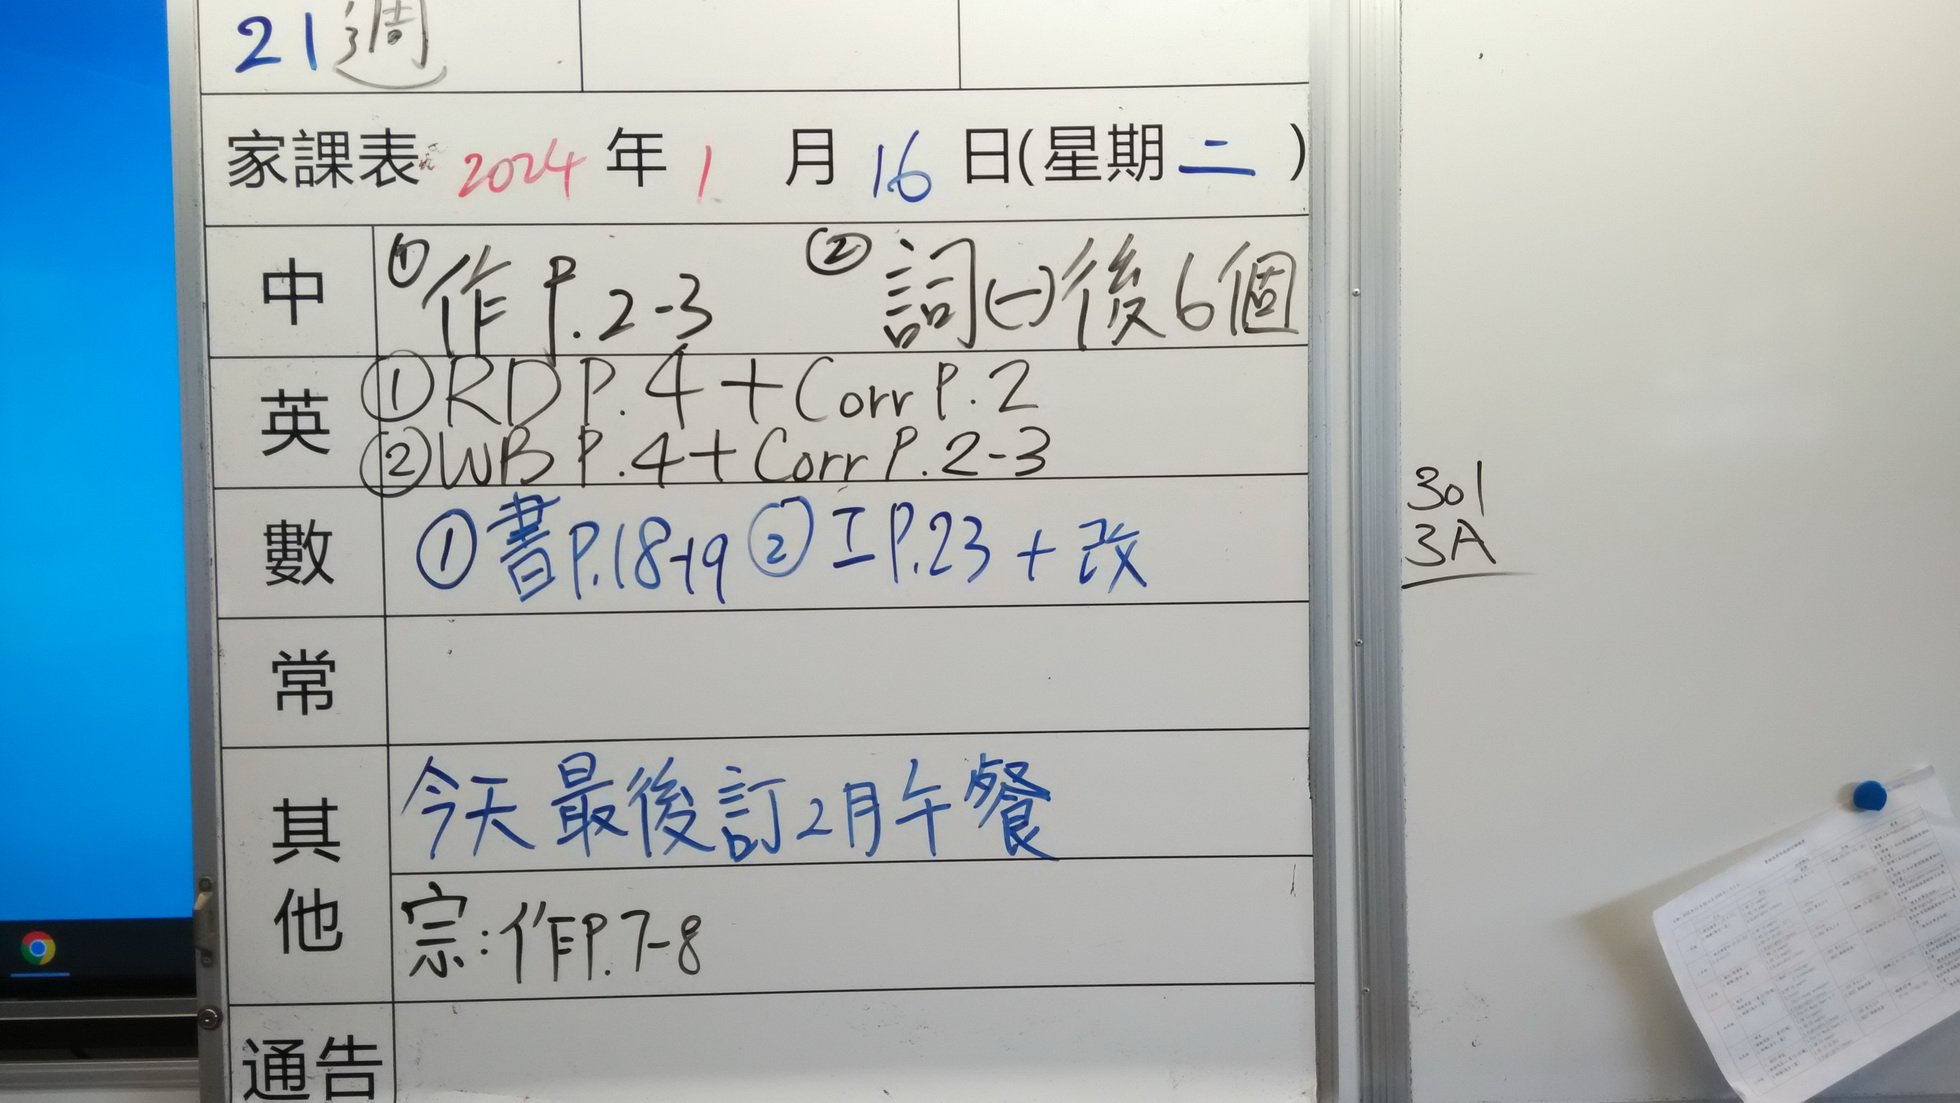 21週
家課表 2024年1月16日(星期二)
中 ①作P.2-3 ②詞(一)後6個
英 ①RD P.4+Corr P.2
②WB P.4+Corr P.2-3
數 ①書P.18-19 ②工P.23+改
常
其他 今天最後訂2月午餐
宗:作P.7-8
通告
301
3A